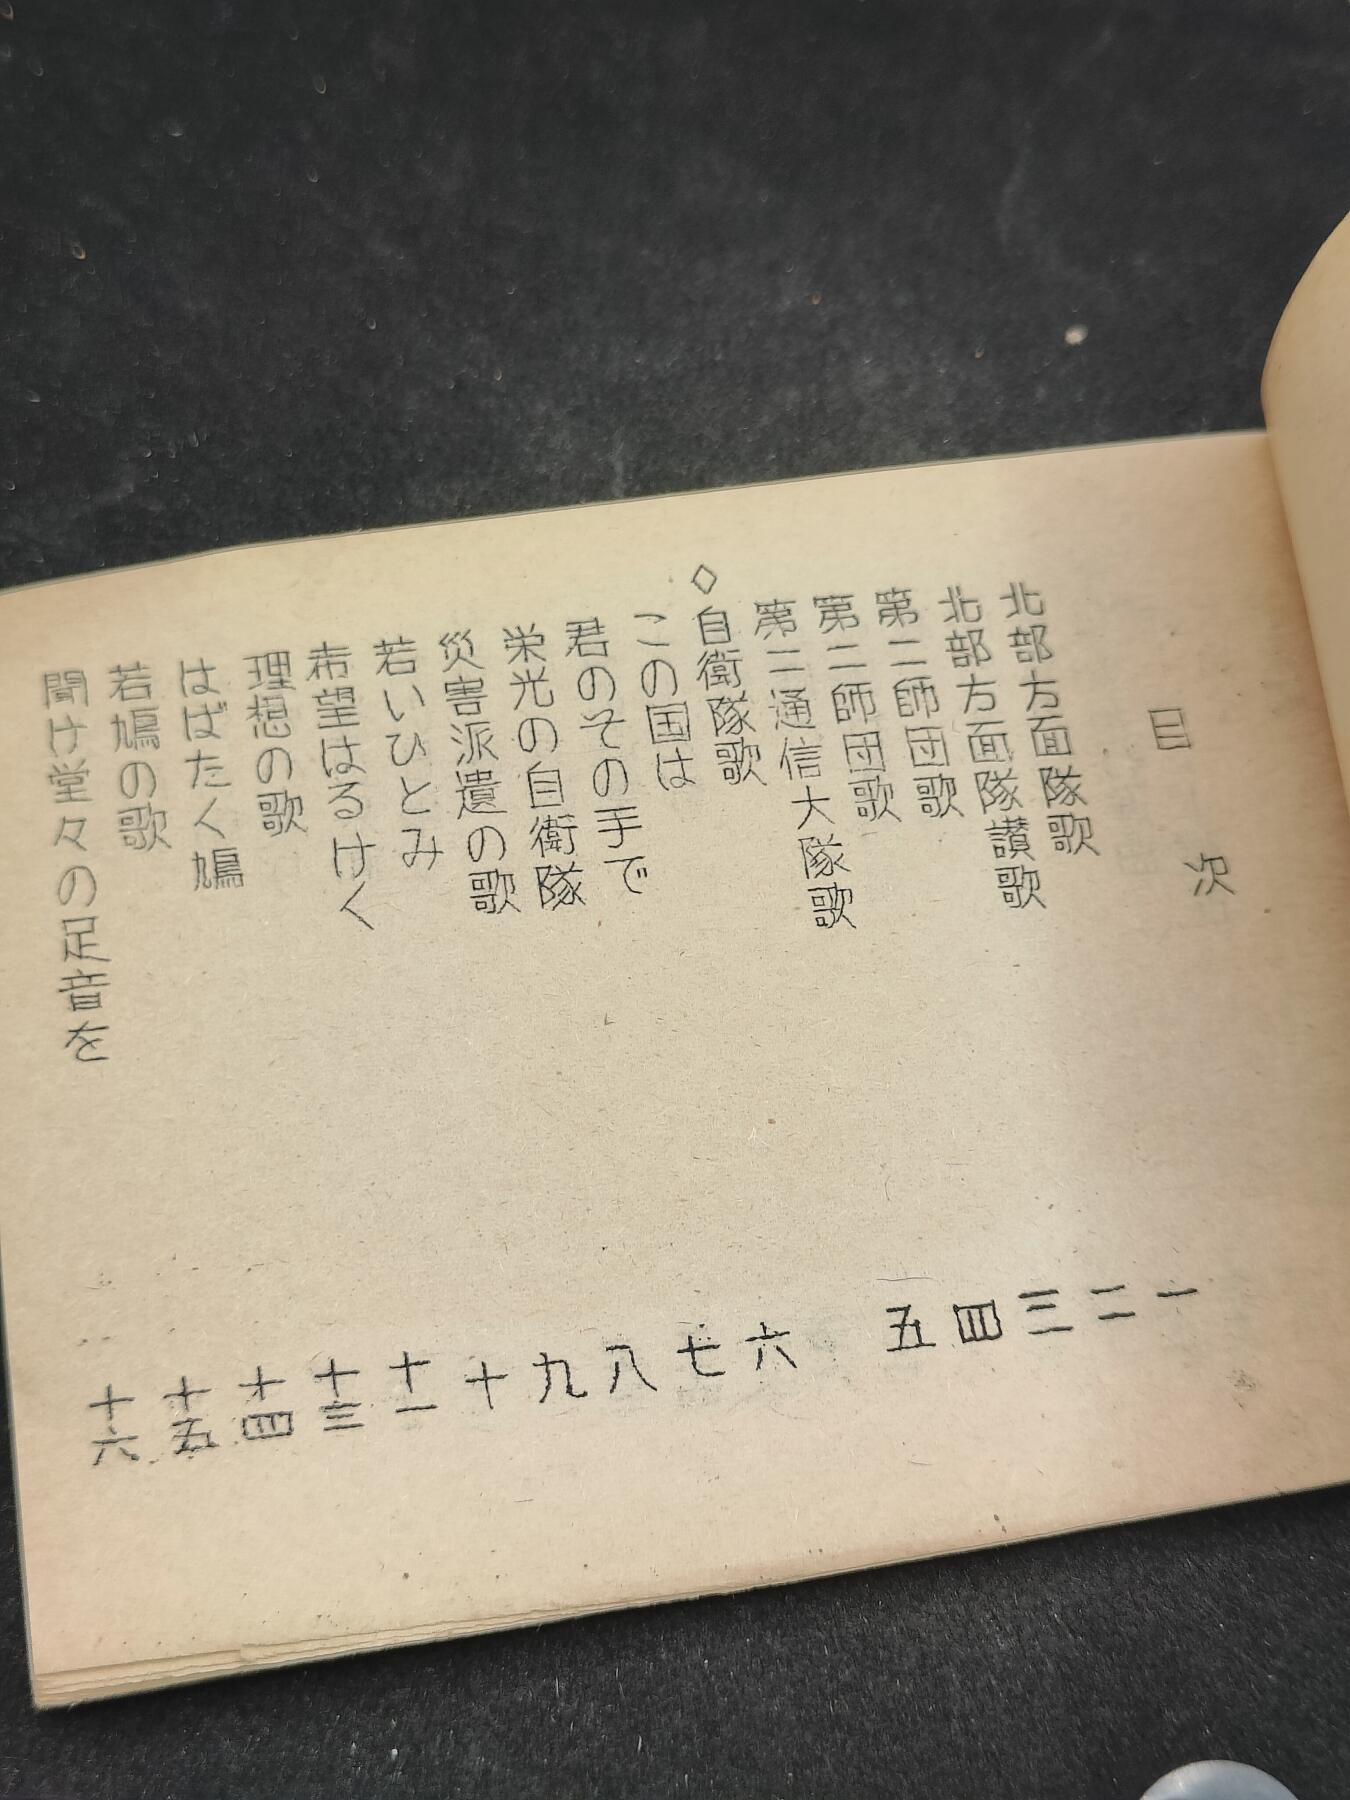 目次
北部方面隊歌 一
北部方面隊讃歌 二
第二師団歌 三
第二師団歌 四
第二通信大隊歌 五
◇自衛隊歌
この国は 六
君のその手で 七
栄光の自衛隊 八
災害派遣の歌 九
若いひとみ 十
希望はるけく 十一
理想の歌 十三
はばたく鳩 十四
若鳩の歌 十五
聞け堂々の足音を 十六